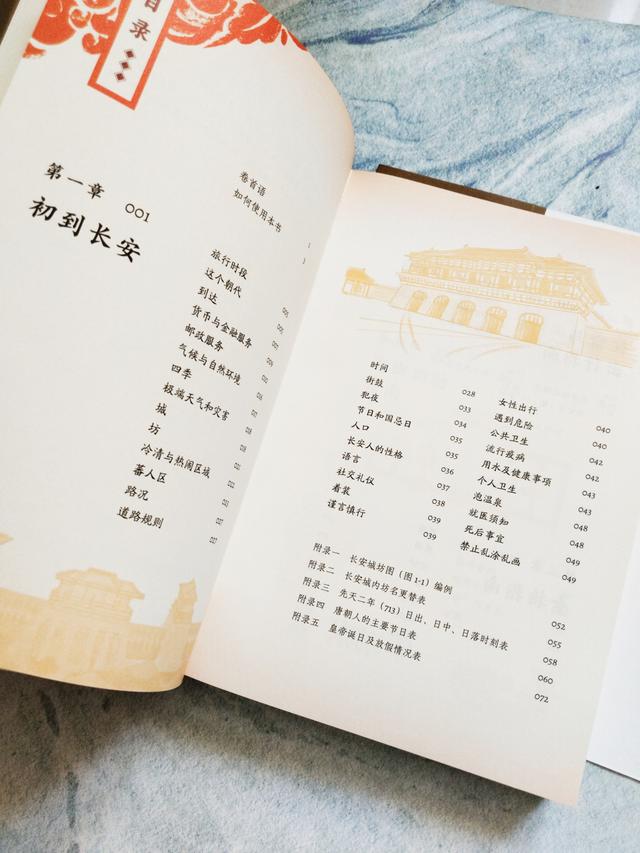 目录
第一章 001
初到长安
卷首语
如何使用本书
旅行时段
这个朝代
到达
货币与金融服务
邮政服务
气候与自然环境
四季
极端天气和灾害
城
坊
冷清与热闹区域
蕃人区
路况
道路规则
时间 028
街鼓 033
犯夜 034
节日和国忌日 035
人口 035
长安人的性格 036
语言 037
社交礼仪 038
着装 039
谨言慎行 039
女性出行 040
遇到危险 040
公共卫生 042
流行疫病 042
用水及健康事项 043
个人卫生 043
泡温泉 048
就医须知 048
死后事宜 049
禁止乱涂乱画 049
附录一 长安城坊图（图1-1）编例 052
附录二 长安城内坊名更替表 055
附录三 先天二年（713）日出、日中、日落时刻表 058
附录四 唐朝人的主要节日表 060
附录五 皇帝诞日及放假情况表 072